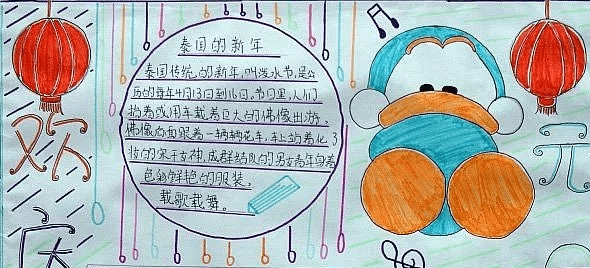 欢
庆
元
泰国的新年
泰国传统的新年,叫泼水节,是公
历的每年4月13日到16日,节日里,人们
抬着或用车载着巨大的佛像出游。
佛像后面跟着一辆辆花车,车上站着化了
妆的宋干女神,成群结队的男女青年身着
色彩鲜艳的服装,
载歌载舞。